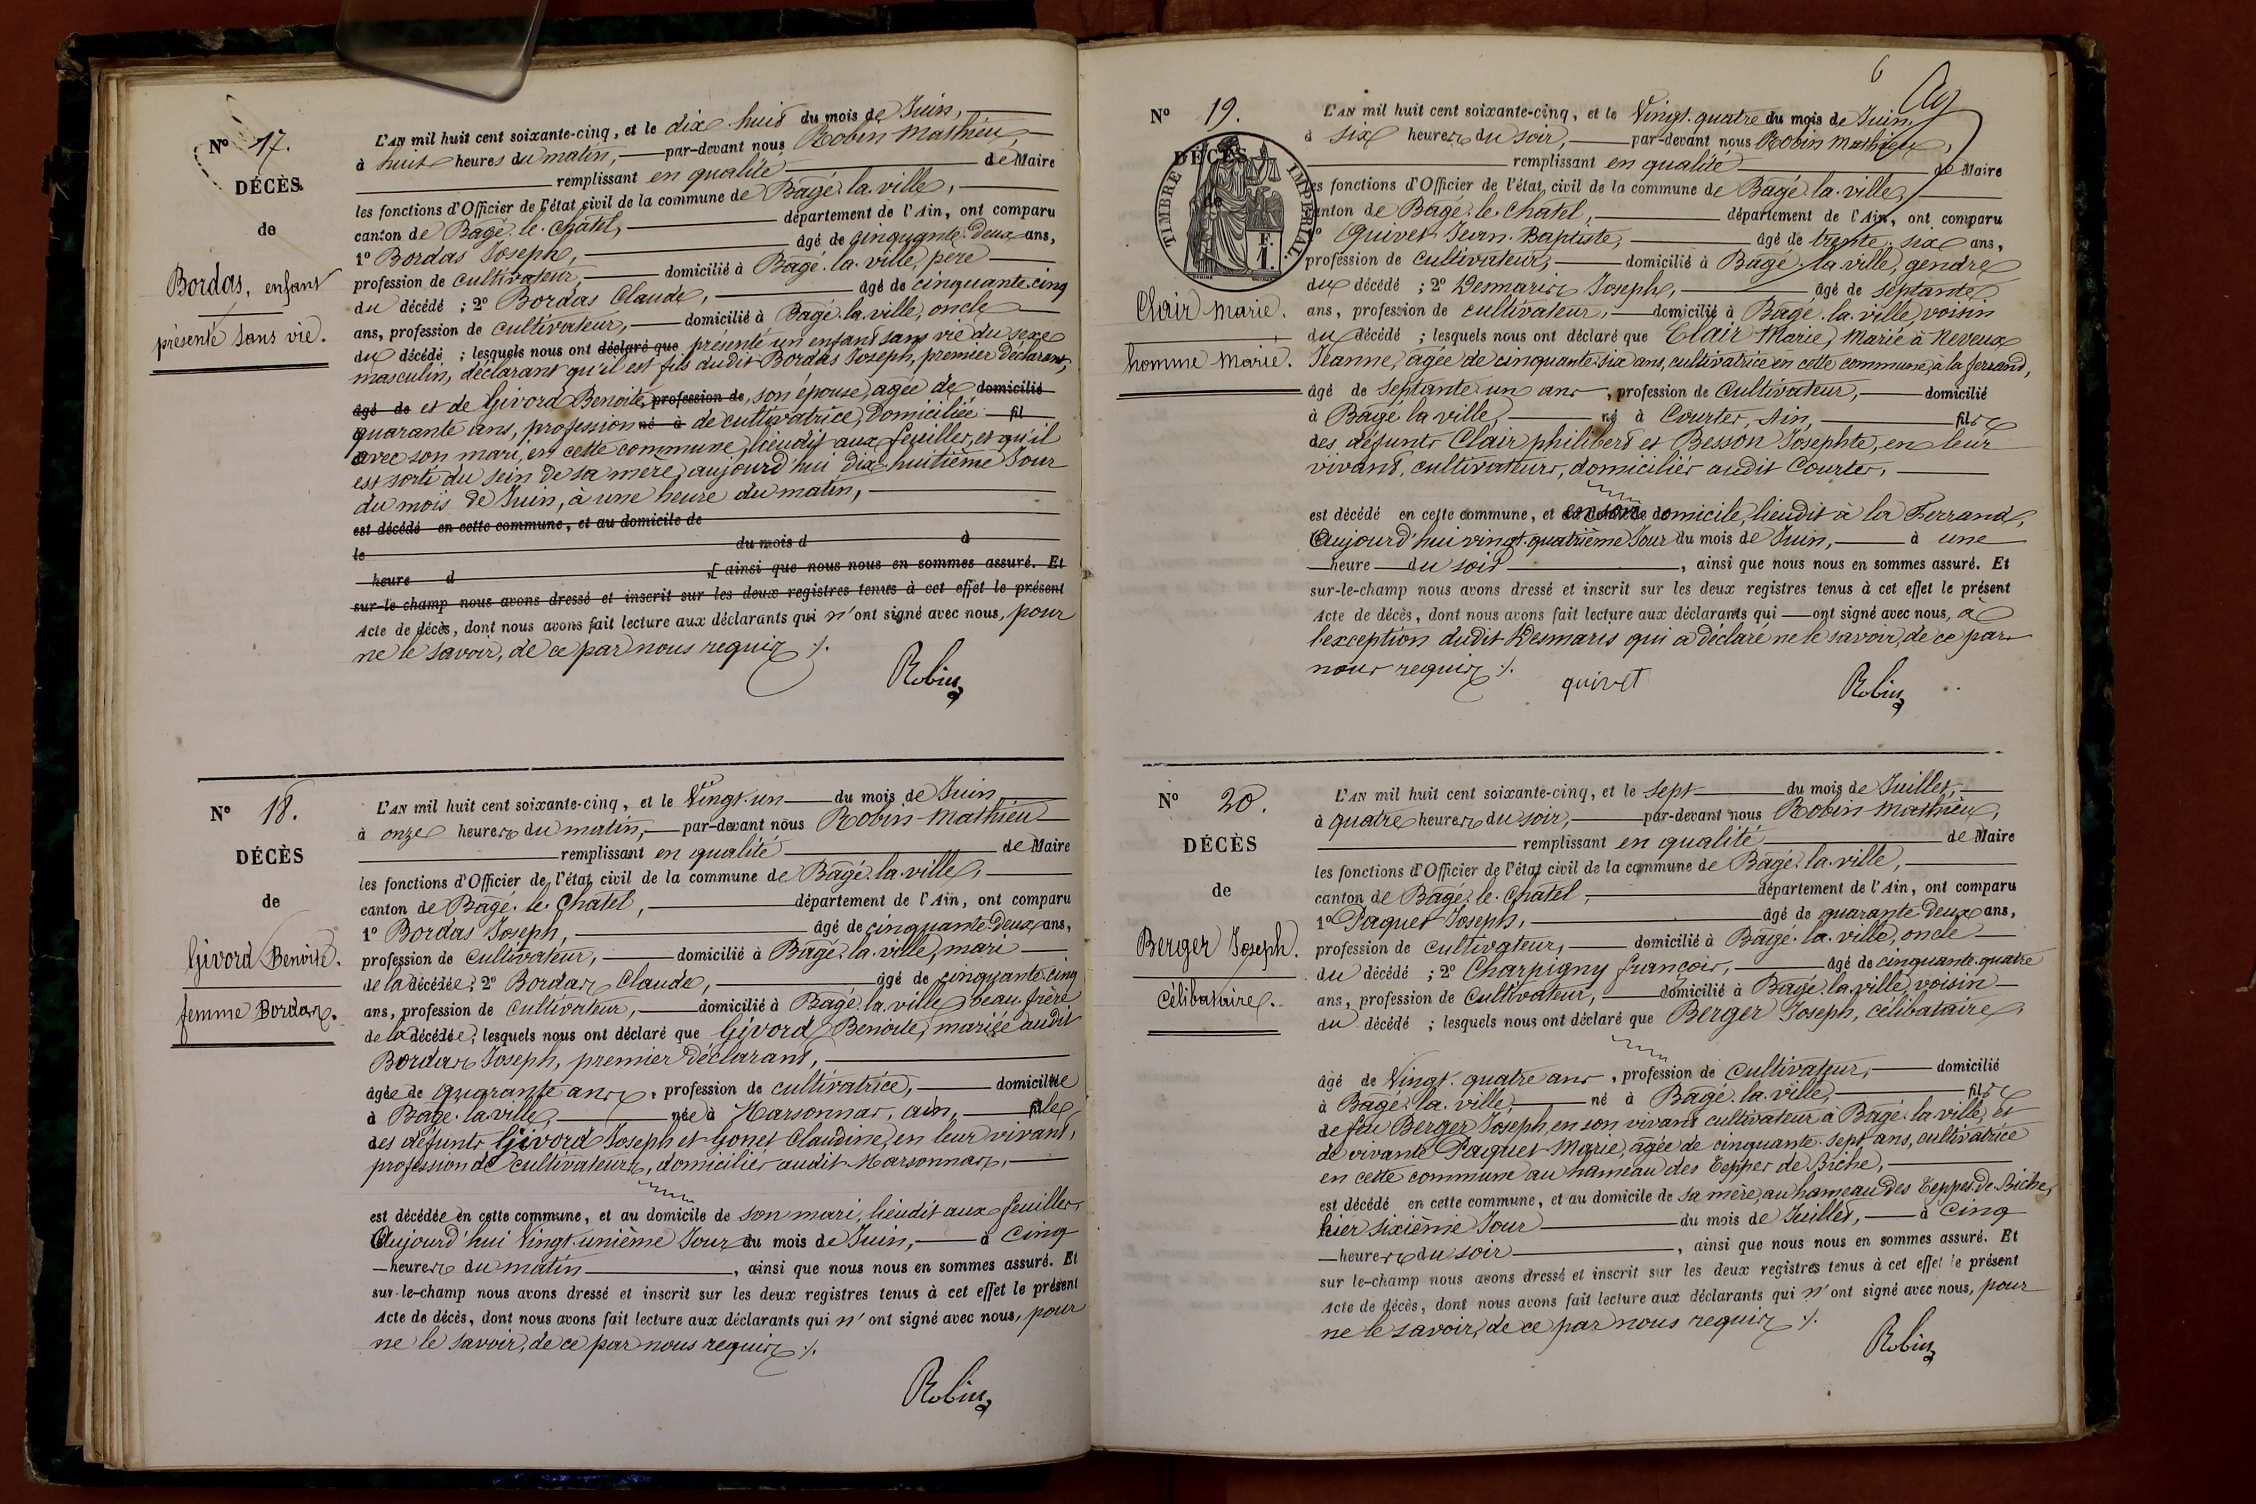 N° 17.
DÉCÈS
de
Bordas, enfant
présenté sans vie.
L'AN mil huit cent soixante-cinq, et le dix-huit du mois de Juin,
à huit heures du matin, par-devant nous Robin Mathieu,
remplissant en qualité de Maire
les fonctions d'Officier de l'état civil de la commune de Bagé-la-ville,
canton de Bagé-le-Chatel, département de l'Ain, ont comparu
1° Bordas Joseph, âgé de cinquante-deux ans,
profession de cultivateur, domicilié à Bagé-la-ville, père
du décédé ; 2° Bordas Claude, âgé de cinquante-cinq
ans, profession de cultivateur, domicilié à Bagé-la-ville, oncle
du décédé ; lesquels nous ont déclaré que présenté un enfant sans vie du sexe
masculin, déclarant qu'il est fils dudit Bordas Joseph, premier déclarant,
âgé de et de Givord Benoite, profession de, son épouse, agée de domicilié
quarante ans, profession né à de cultivatrice, Domiciliée fil
avec son mari, en cette commune, lieudit aux feuilles, et qu'il
est sorti du sein de sa mère, aujourd'hui dix-huitième Jour
du mois de Juin, à une heure du matin,
est décédé en cette commune, et au domicile de
le du mois d à
heure d , ainsi que nous nous en sommes assuré. Et
sur-le-champ nous avons dressé et inscrit sur les deux registres tenus à cet effet le présent
Acte de décès, dont nous avons fait lecture aux déclarants qui n'ont signé avec nous, pour
ne le savoir, de ce par nous requis ./.
Robin
N° 18.
DÉCÈS
de
Givord Benoite.
femme Bordas.
L'AN mil huit cent soixante-cinq, et le Vingt-un du mois de Juin
à onze heures du matin, par-devant nous Robin Mathieu
remplissant en qualité de Maire
les fonctions d'Officier de l'état civil de la commune de Bagé-la-ville,
canton de Bagé-le-Chatel, département de l'Ain, ont comparu
1° Bordas Joseph, âgé de cinquante-deux ans,
profession de cultivateur, domicilié à Bagé-la-ville, mari
de la décédée ; 2° Bordas Claude, âgé de cinquante-cinq
ans, profession de cultivateur, domicilié à Bagé-la-ville, beau-frère
de la décédée ; lesquels nous ont déclaré que Givord Benoite, mariée audit
Bordas Joseph, premier déclarant,
âgée de quarante ans, profession de cultivatrice, domiciliée
à Bagé-la-ville, née à Marsonnas, ain, fille
des défunts Givord Joseph et Gonet Claudine, en leur vivant,
profession de cultivateurs, domiciliés audit Marsonnas,
est décédée en cette commune, et au domicile de son mari, lieudit aux feuilles
Aujourd'hui Vingt-unième Jour du mois de Juin, à Cinq
heures du matin, ainsi que nous nous en sommes assuré. Et
sur-le-champ nous avons dressé et inscrit sur les deux registres tenus à cet effet le présent
Acte de décès, dont nous avons fait lecture aux déclarants qui n'ont signé avec nous, pour
ne le savoir, de ce par nous requis ./.
Robin
6
N° 19.
DÉCÈS
de
TIMBRE IMPÉRIAL
F.
1.
Clair Marie.
homme Marié.
L'AN mil huit cent soixante-cinq, et le Vingt-quatre du mois de Juin,
à six heures du soir, par-devant nous Robin Mathieu,
remplissant en qualité de Maire
es fonctions d'Officier de l'état civil de la commune de Bagé-la-ville,
anton de Bagé-le-Chatel, département de l'Ain, ont comparu
1° Quivet Jean-Baptiste, âgé de trente-six ans,
profession de cultivateur, domicilié à Bagé-la-ville, gendre
du décédé ; 2° Desmaris Joseph, âgé de septante
ans, profession de cultivateur, domicilié à Bagé-la-ville, voisin
du décédé ; lesquels nous ont déclaré que Clair Marie, Marié à Neveux
Jeanne, agée de cinquante-six ans, cultivatrice en cette commune, à la ferrand,
âgé de septante-un ans, profession de Cultivateur, domicilié
à Bagé la ville, né à Courtes, Ain, fils
des défunts Clair philibert et Besson Josephte, en leur
vivant, cultivateurs, domiciliés audit Courtes,
est décédé en cette commune, et en son domicile, lieudit à la Ferrand,
Aujourd'hui vingt-quatrième Jour du mois de Juin, à une
heure du soir, ainsi que nous nous en sommes assuré. Et
sur-le-champ nous avons dressé et inscrit sur les deux registres tenus à cet effet le présent
Acte de décès, dont nous avons fait lecture aux déclarants qui ont signé avec nous, à
l'exception dudit Desmaris qui a déclaré ne le savoir, de ce par
nous requis ./.
quivet
Robin
N° 20.
DÉCÈS
de
Berger Joseph.
Célibataire.
L'AN mil huit cent soixante-cinq, et le sept du mois de Juillet,
à quatre heures du soir, par-devant nous Robin Mathieu,
remplissant en qualité de Maire
les fonctions d'Officier de l'état civil de la commune de Bagé-la-ville,
canton de Bagé-le-Chatel, département de l'Ain, ont comparu
1° Paquet Joseph, âgé de quarante-deux ans,
profession de cultivateur, domicilié à Bagé-la-ville, oncle
du décédé ; 2° Charpigny françois, âgé de cinquante-quatre
ans, profession de Cultivateur, domicilié à Bagé-la-ville, voisin
du décédé ; lesquels nous ont déclaré que Berger Joseph, célibataire,
âgé de Vingt-quatre ans, profession de Cultivateur, domicilié
à Bagé-la-ville, né à Bagé-la-ville, fils
de feu Berger Joseph, en son vivant cultivateur à Bagé-la-ville, et
de vivante Paquet Marie, agée de cinquante-sept ans, cultivatrice
en cette commune au hameau des Teppes de Biche,
est décédé en cette commune, et au domicile de sa mère, au hameau des Teppes de Biche,
hier sixième Jour du mois de Juillet, à Cinq
heures du soir, ainsi que nous nous en sommes assuré. Et
sur le-champ nous avons dressé et inscrit sur les deux registres tenus à cet effet le présent
Acte de décès, dont nous avons fait lecture aux déclarants qui n'ont signé avec nous, pour
ne le savoir, de ce par nous requis ./.
Robin